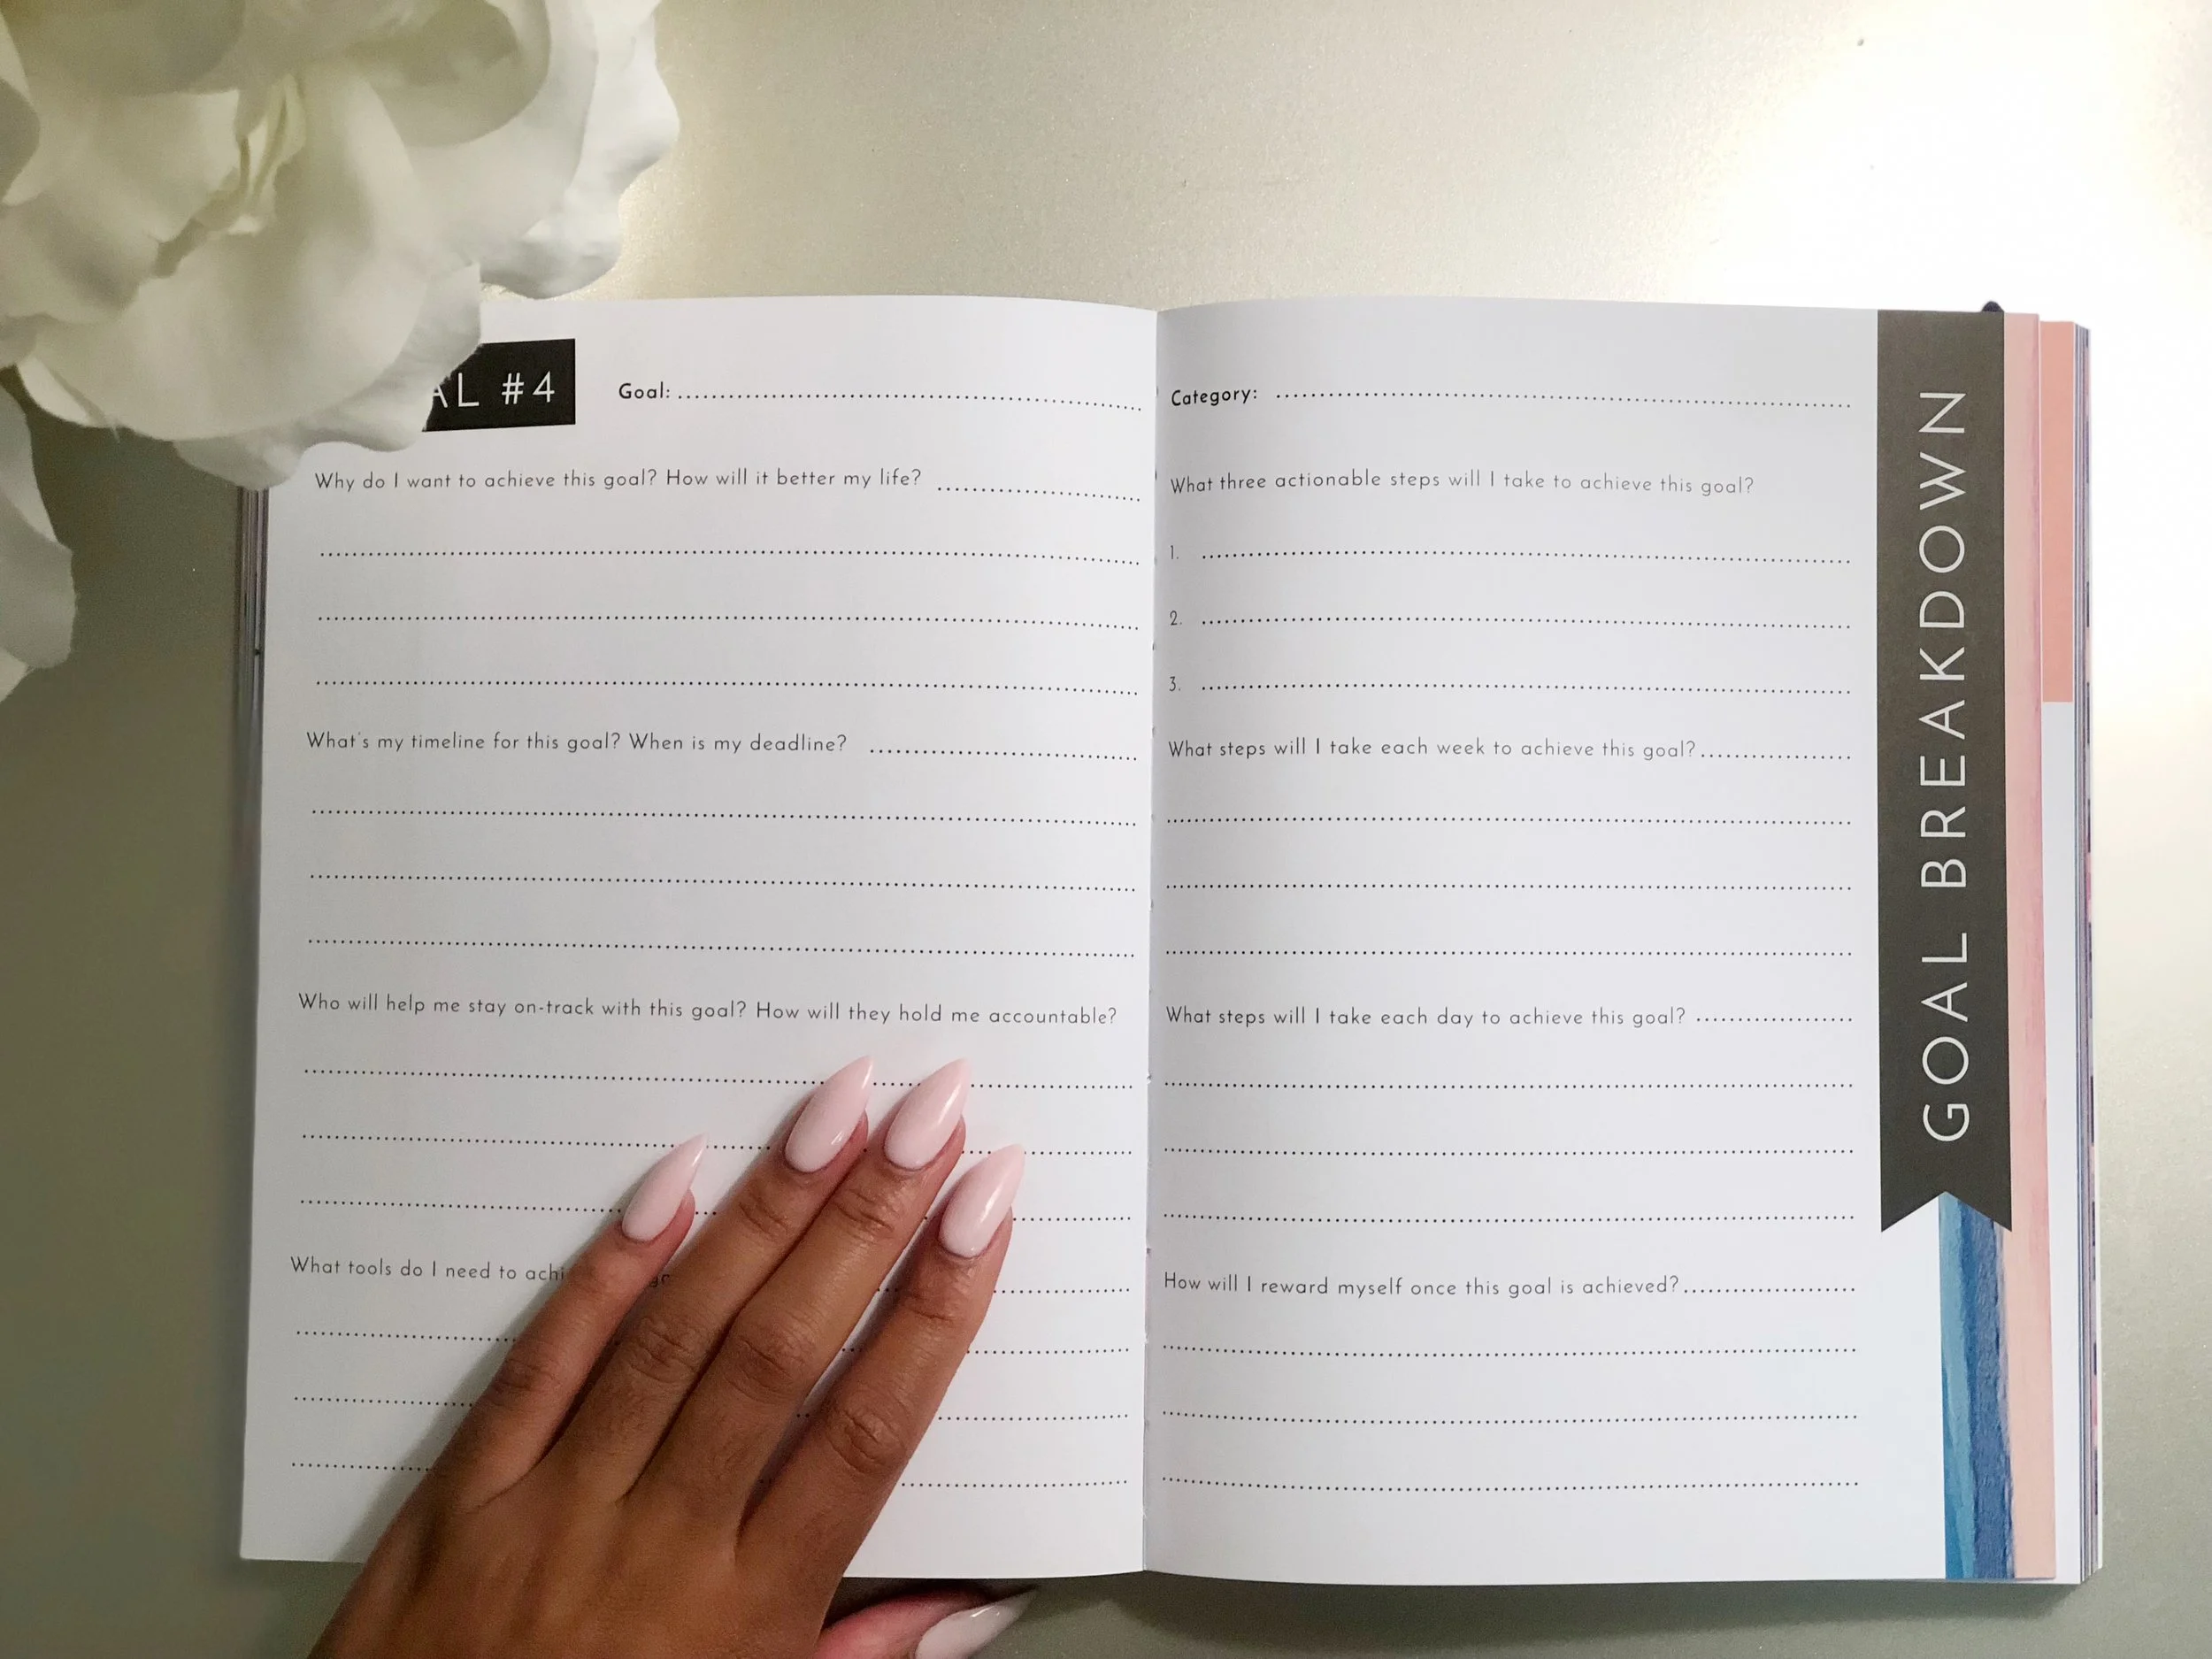 #4
Goal:
Why do I want to achieve this goal? How will it better my life?
What's my timeline for this goal? When is my deadline?
Who will help me stay on-track with this goal? How will they hold me accountable?
What tools do I need to
Category:
What three actionable steps will I take to achieve this goal?
1.
2.
3.
What steps will I take each week to achieve this goal?
What steps will I take each day to achieve this goal?
How will I reward myself once this goal is achieved?
GOAL BREAKDOWN